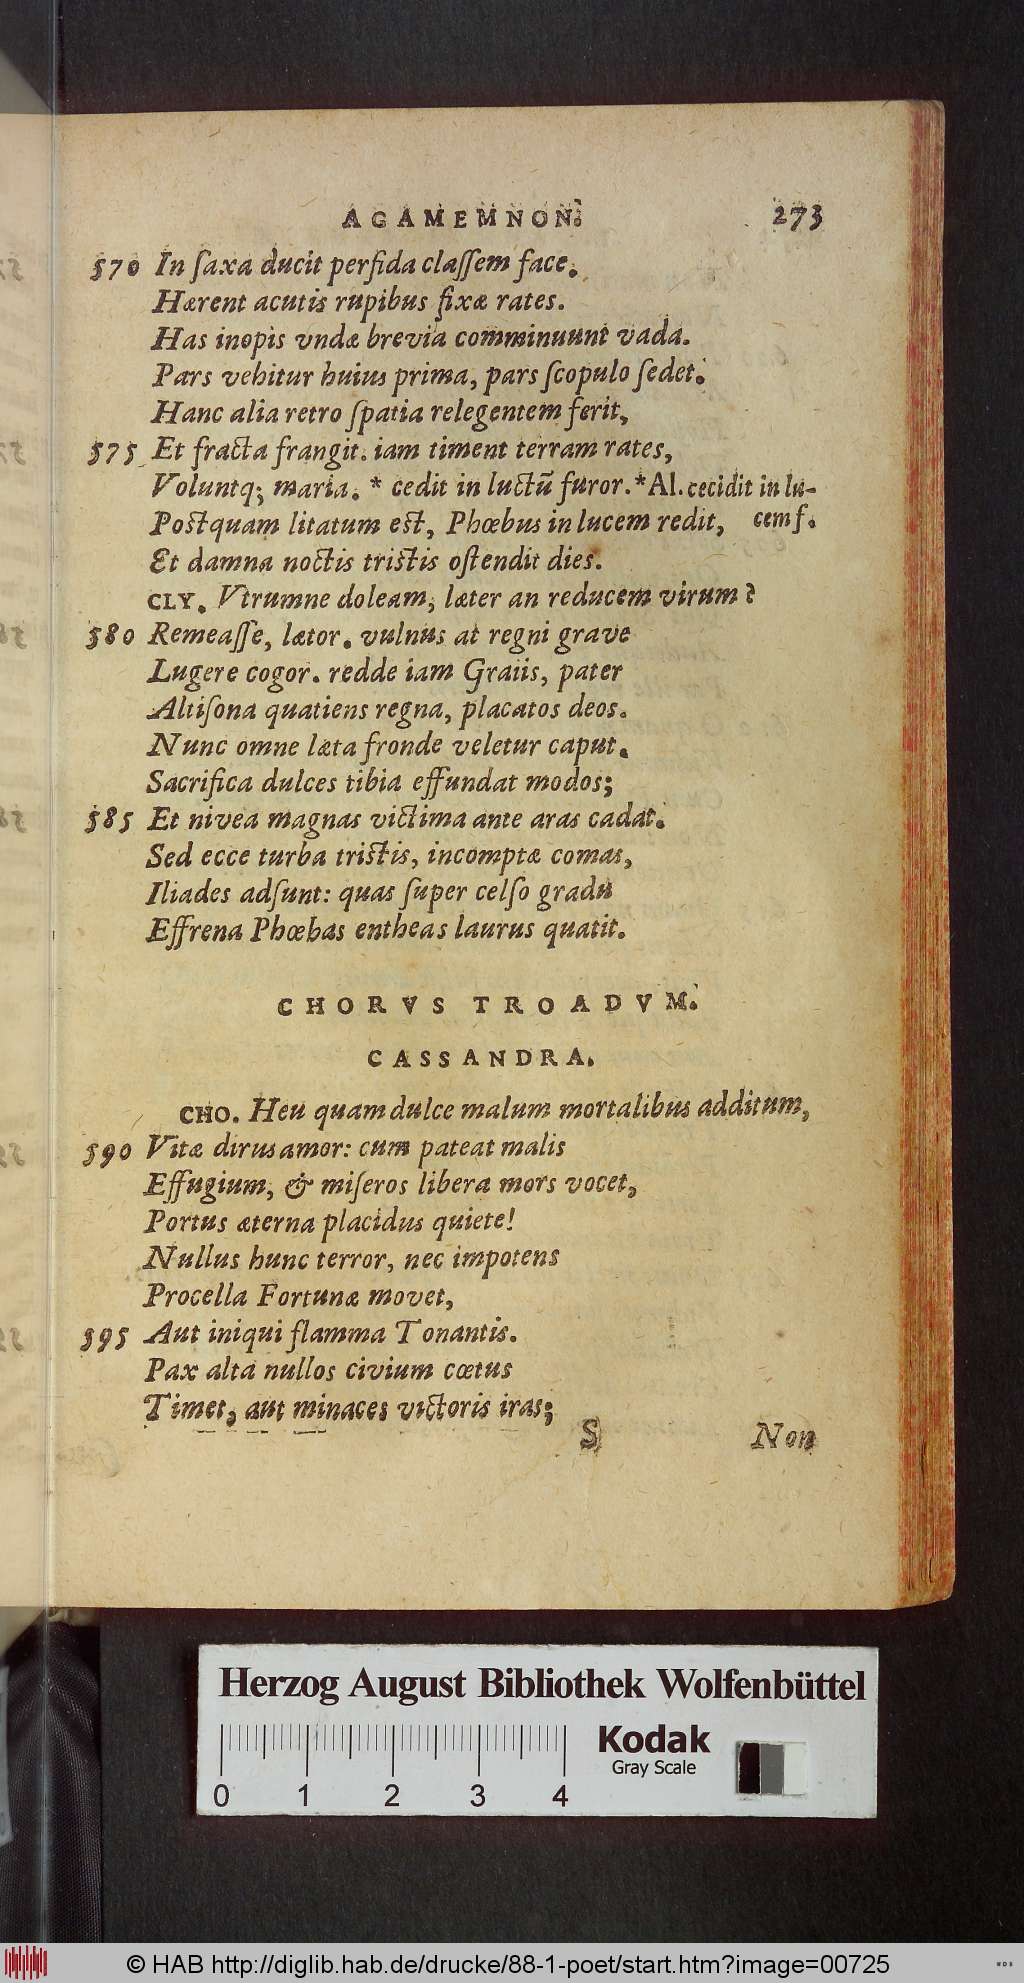 AGAMEMNON. 273
570 In ſaxa ducit perfida claſſem face.
Hærent acutis rupibus fixæ rates.
Has inopis vndæ brevia comminuunt vada.
Pars vehitur huius prima, pars ſcopulo ſedet.
Hanc alia retro ſpatia relegentem ferit,
575 Et fracta frangit. iam timent terram rates,
Voluntq; maria. * cedit in luctū furor. *Al. cecidit in lu-
Postquam litatum est, Phœbus in lucem redit, cem f.
Et damna noctis tristis oſtendit dies.
CLY. Vtrumne doleam, læter an reducem virum?
580 Remeaſſe, lætor. vulnus at regni grave
Lugere cogor. redde iam Graiis, pater
Altiſona quatiens regna, placatos deos.
Nunc omne læta fronde veletur caput.
Sacrifica dulces tibia effundat modos;
585 Et nivea magnas victima ante aras cadat.
Sed ecce turba tristis, incomptæ comas,
Iliades adſunt: quas ſuper celſo gradu
Effrena Phœbas entheas laurus quatit.
CHORVS TROADVM.
CASSANDRA.
CHO. Heu quam dulce malum mortalibus additum,
590 Vitæ dirus amor: cum pateat malis
Effugium, & miſeros libera mors vocet,
Portus æterna placidus quiete!
Nullus hunc terror, nec impotens
Procella Fortunæ movet,
595 Aut iniqui flamma Tonantis.
Pax alta nullos civium cœtus
Timet, aut minaces victoris iras;
S Non
Herzog August Bibliothek Wolfenbüttel
Kodak
Gray Scale
0 1 2 3 4
© HAB http://diglib.hab.de/drucke/88-1-poet/start.htm?image=00725